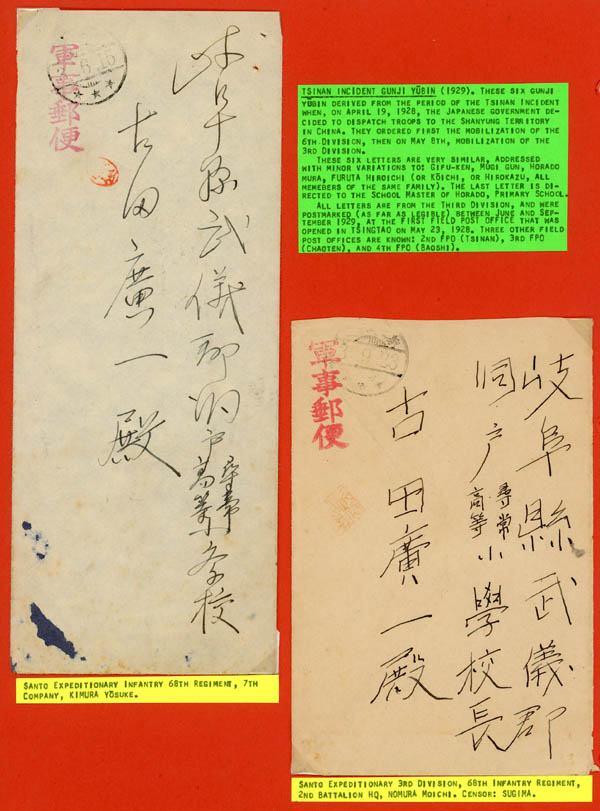 軍事郵便
岐阜縣武儀郡洞戸尋常高等小学校
古田廣一殿
TSINAN INCIDENT GUNJI YŪBIN (1929). THESE SIX GUNJI
YŪBIN DERIVED FROM THE PERIOD OF THE TSINAN INCIDENT
WHEN, ON APRIL 19, 1928, THE JAPANESE GOVERNMENT DE-
CIDED TO DISPATCH TROOPS TO THE SHANYUNG TERRITORY
IN CHINA. THEY ORDERED FIRST THE MOBILIZATION OF THE
6TH DIVISION, THEN ON MAY 8TH, MOBILIZATION OF THE
3RD DIVISION.
THESE SIX LETTERS ARE VERY SIMILAR, ADDRESSED
WITH MINOR VARIATIONS TO: GIFU-KEN, MUGI GUN, HORADO
MURA, FURUTA HIROICHI (OR KŌICHI, OR HIROKAZU, ALL
MEMEBERS OF THE SAME FAMILY). THE LAST LETTER IS DI-
RECTED TO THE SCHOOL MASTER OF HORADO, PRIMARY SCHOOL.
ALL LETTERS ARE FROM THE THIRD DIVISION, AND WERE
POSTMARKED (AS FAR AS LEGIBLE) BETWEEN JUNE AND SEP-
TEMBER 1929, AT THE FIRST FIELD POST OFFICE THAT WAS
OPENED IN TSINGTAO ON MAY 23, 1928. THREE OTHER FIELD
POST OFFICES ARE KNOWN: 2ND FPO (TSINAN), 3RD FPO
(CHAOTEN), AND 4TH FPO (BAOSHI).
軍事郵便
岐阜縣武儀郡
洞戸尋常高等小學校長
古田廣一殿
SANTO EXPEDITIONARY INFANTRY 68TH REGIMENT, 7TH
COMPANY, KIMURA YŌSUKE.
SANTO EXPEDITIONARY 3RD DIVISION, 68TH INFANTRY REGIMENT,
2ND BATTALION HQ, NOMURA MOICHI. CENSOR: SUGIMA.